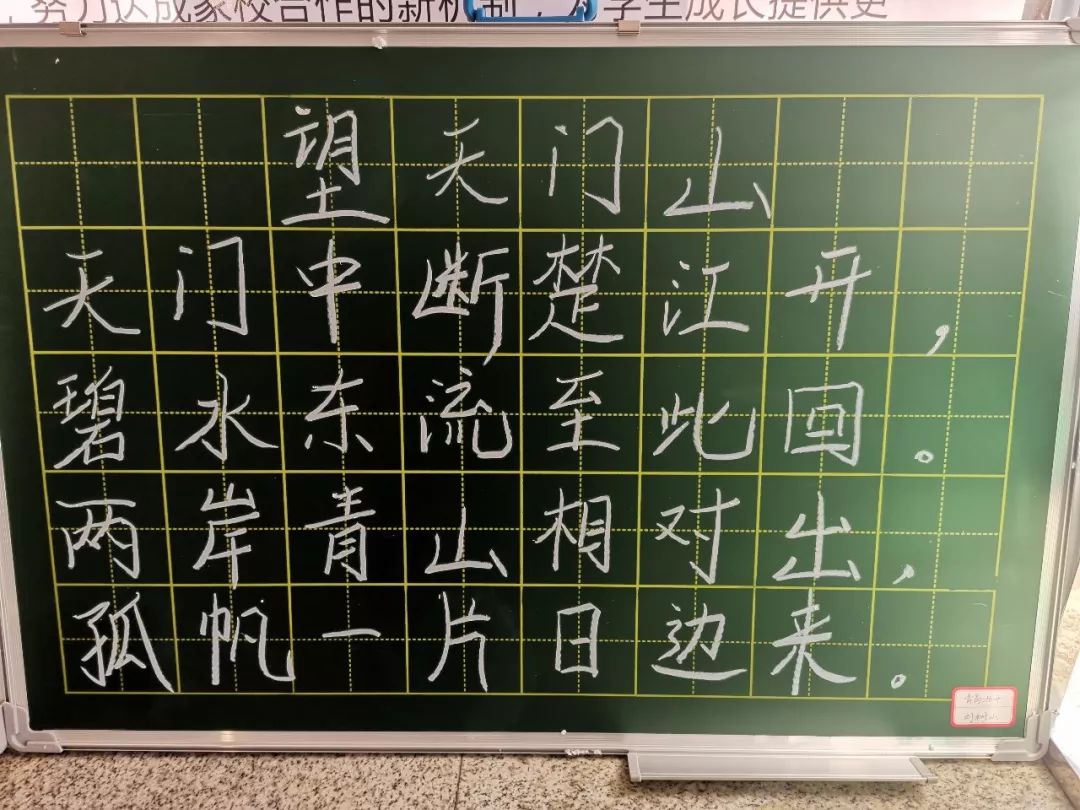 努力达成家校合作的新机制，为学生成长提供更
望天门山
天门中断楚江开，
碧水东流至此回。
两岸青山相对出，
孤帆一片日边来。